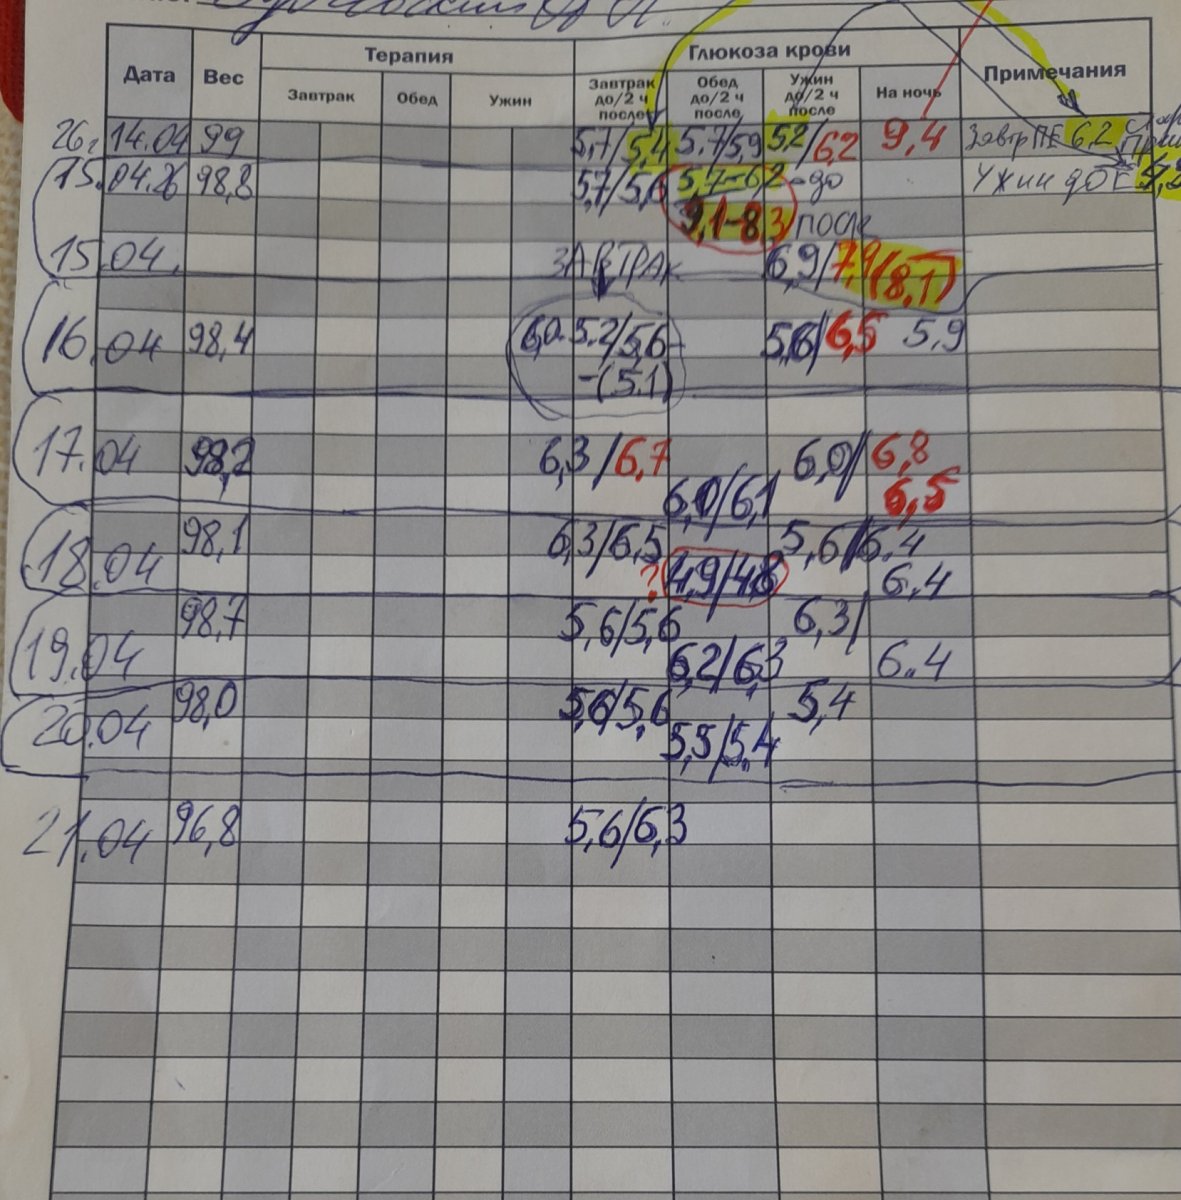 Дата Вес Терапия Глюкоза крови Примечания
Завтрак Обед Ужин Завтрак до/2 ч после Обед до/2 ч после Ужин до/2 ч после На ночь
26г 14.04 99 5,7/5,4 5.7/5,9 5,2/6,2 9,4 Завтр ПЕ 6,2
15.04.26 98,8 5,7/5,6 5,7-6,2 -до Ужин до Е
9,1-8,3 /после
15.04. ЗАВТРАК 6,9/7,9 (8,1)
16.04 98,4 6,0. 5.2/5,6- 5,6/6,5 5,9
-(5.1)
17.04 98,2 6,3/6,7 6,0/6,8
6,0/6,1 6,5
98,1 6,3/6,5 5,6/6.4
18.04 ? 4,9/4,8 6.4
98,7 5,6/5,6 6,3/
19.04 6,2/6,3 6.4
98,0 5,6/5,6 5,4
20.04 5,5/5,4
21.04 96,8 5,6/6,3